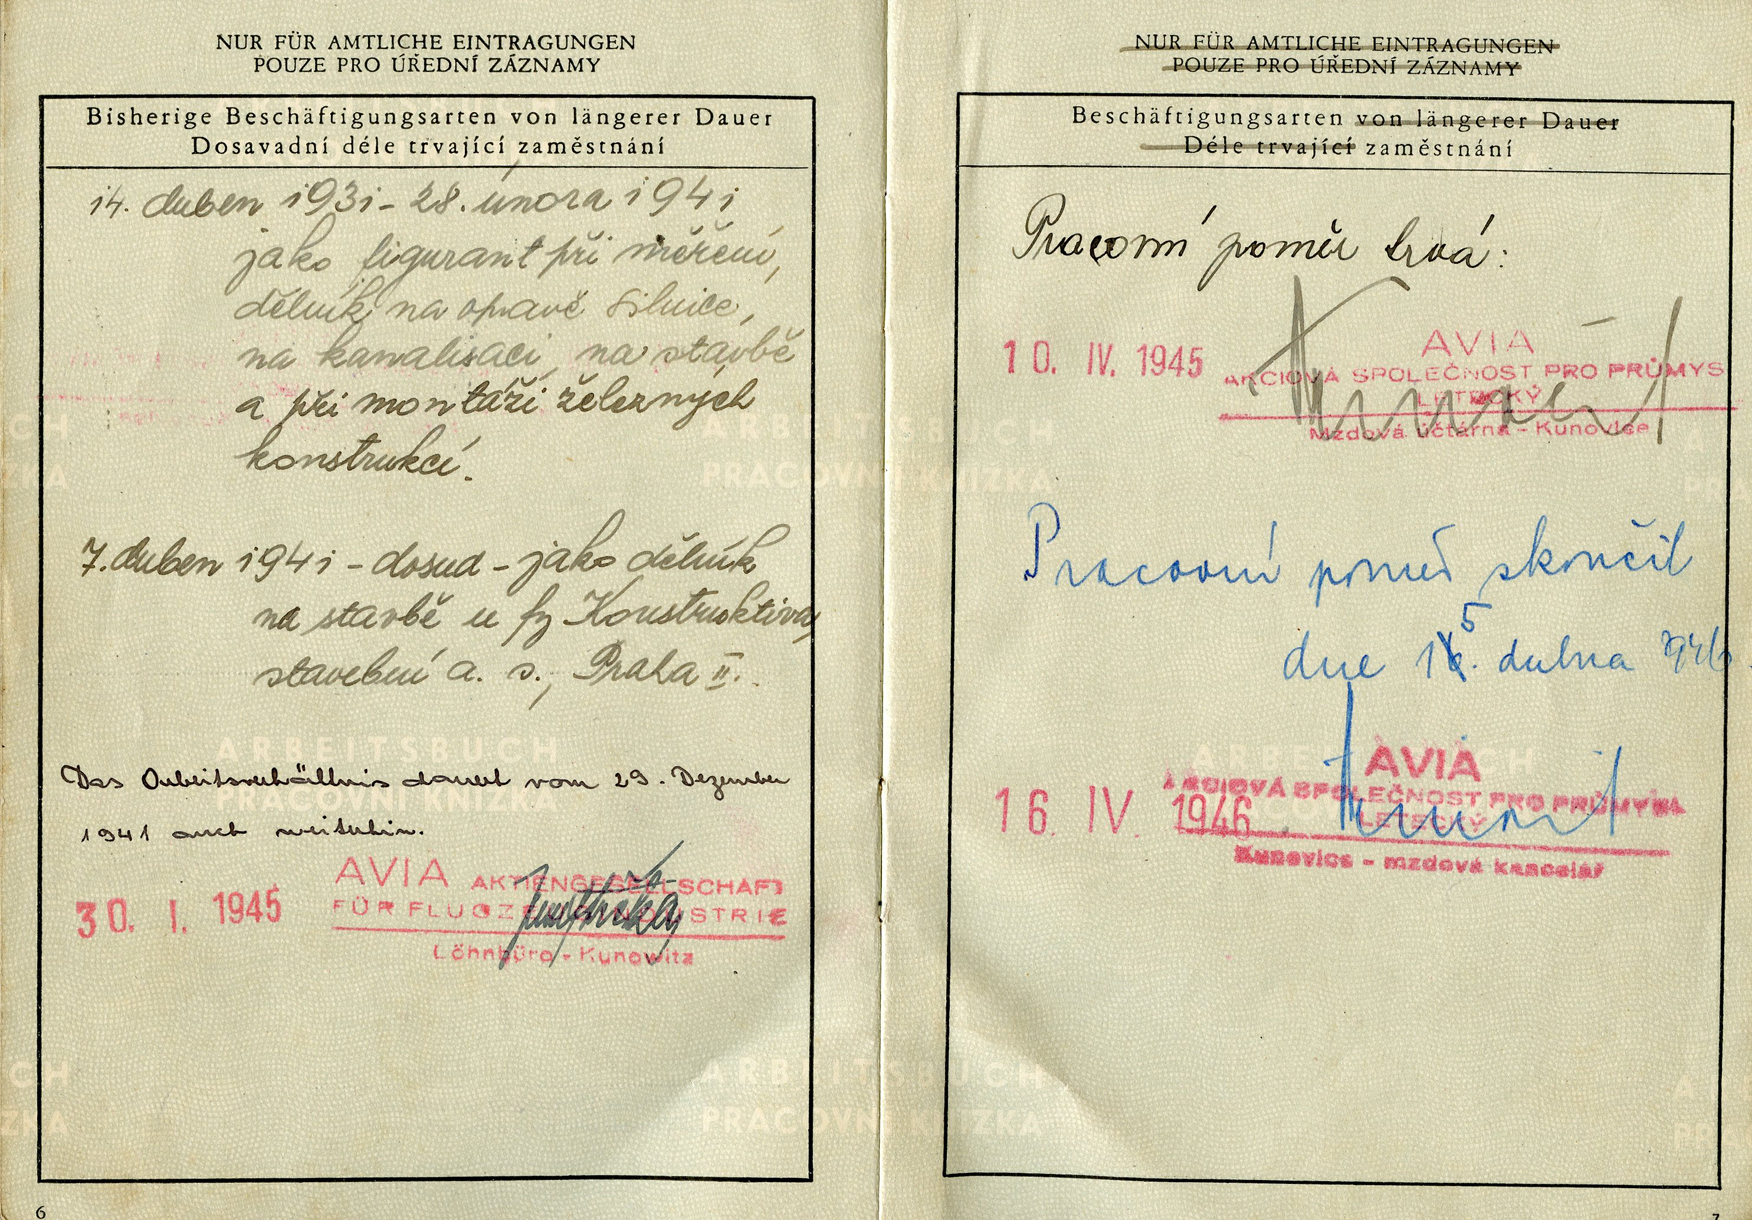 NUR FÜR AMTLICHE EINTRAGUNGEN
POUZE PRO ÚŘEDNÍ ZÁZNAMY
Bisherige Beschäftigungsarten von längerer Dauer
Dosavadní déle trvající zaměstnání
14. duben 1931 - 28. února 1941
jako figurant při měření,
dělník na opravě silnice,
na kanalisaci, na stavbě
a při montáži železných
konstrukcí.
7. duben 1941 - dosud - jako dělník
na stavbě u fy Konstruktiva,
stavební a. s., Praha II.
Das Arbeitsverhältnis dauert vom 29. Dezember
1941 auch weiterhin.
AVIA AKTIENGESELLSCHAFT
30. I. 1945 FÜR FLUGZEUGINDUSTRIE
Löhnbüro - Kunowitz
6
NUR FÜR AMTLICHE EINTRAGUNGEN
POUZE PRO ÚŘEDNÍ ZÁZNAMY
Beschäftigungsarten von längerer Dauer
Déle trvající zaměstnání
Pracovní poměr trvá:
AVIA
10. IV. 1945 AKCIOVÁ SPOLEČNOST PRO PRŮMYS
LETECKÝ
Mzdová účtárna - Kunovice
Pracovní poměr skončil
dne 15. dubna 1946.
AVIA
AKCIOVÁ SPOLEČNOST PRO PRŮMYSL
16. IV. 1946 LETECKÝ
Kunovice - mzdová kancelář
7
ARBEITSBUCH
PRACOVNÍ KNÍŽKA